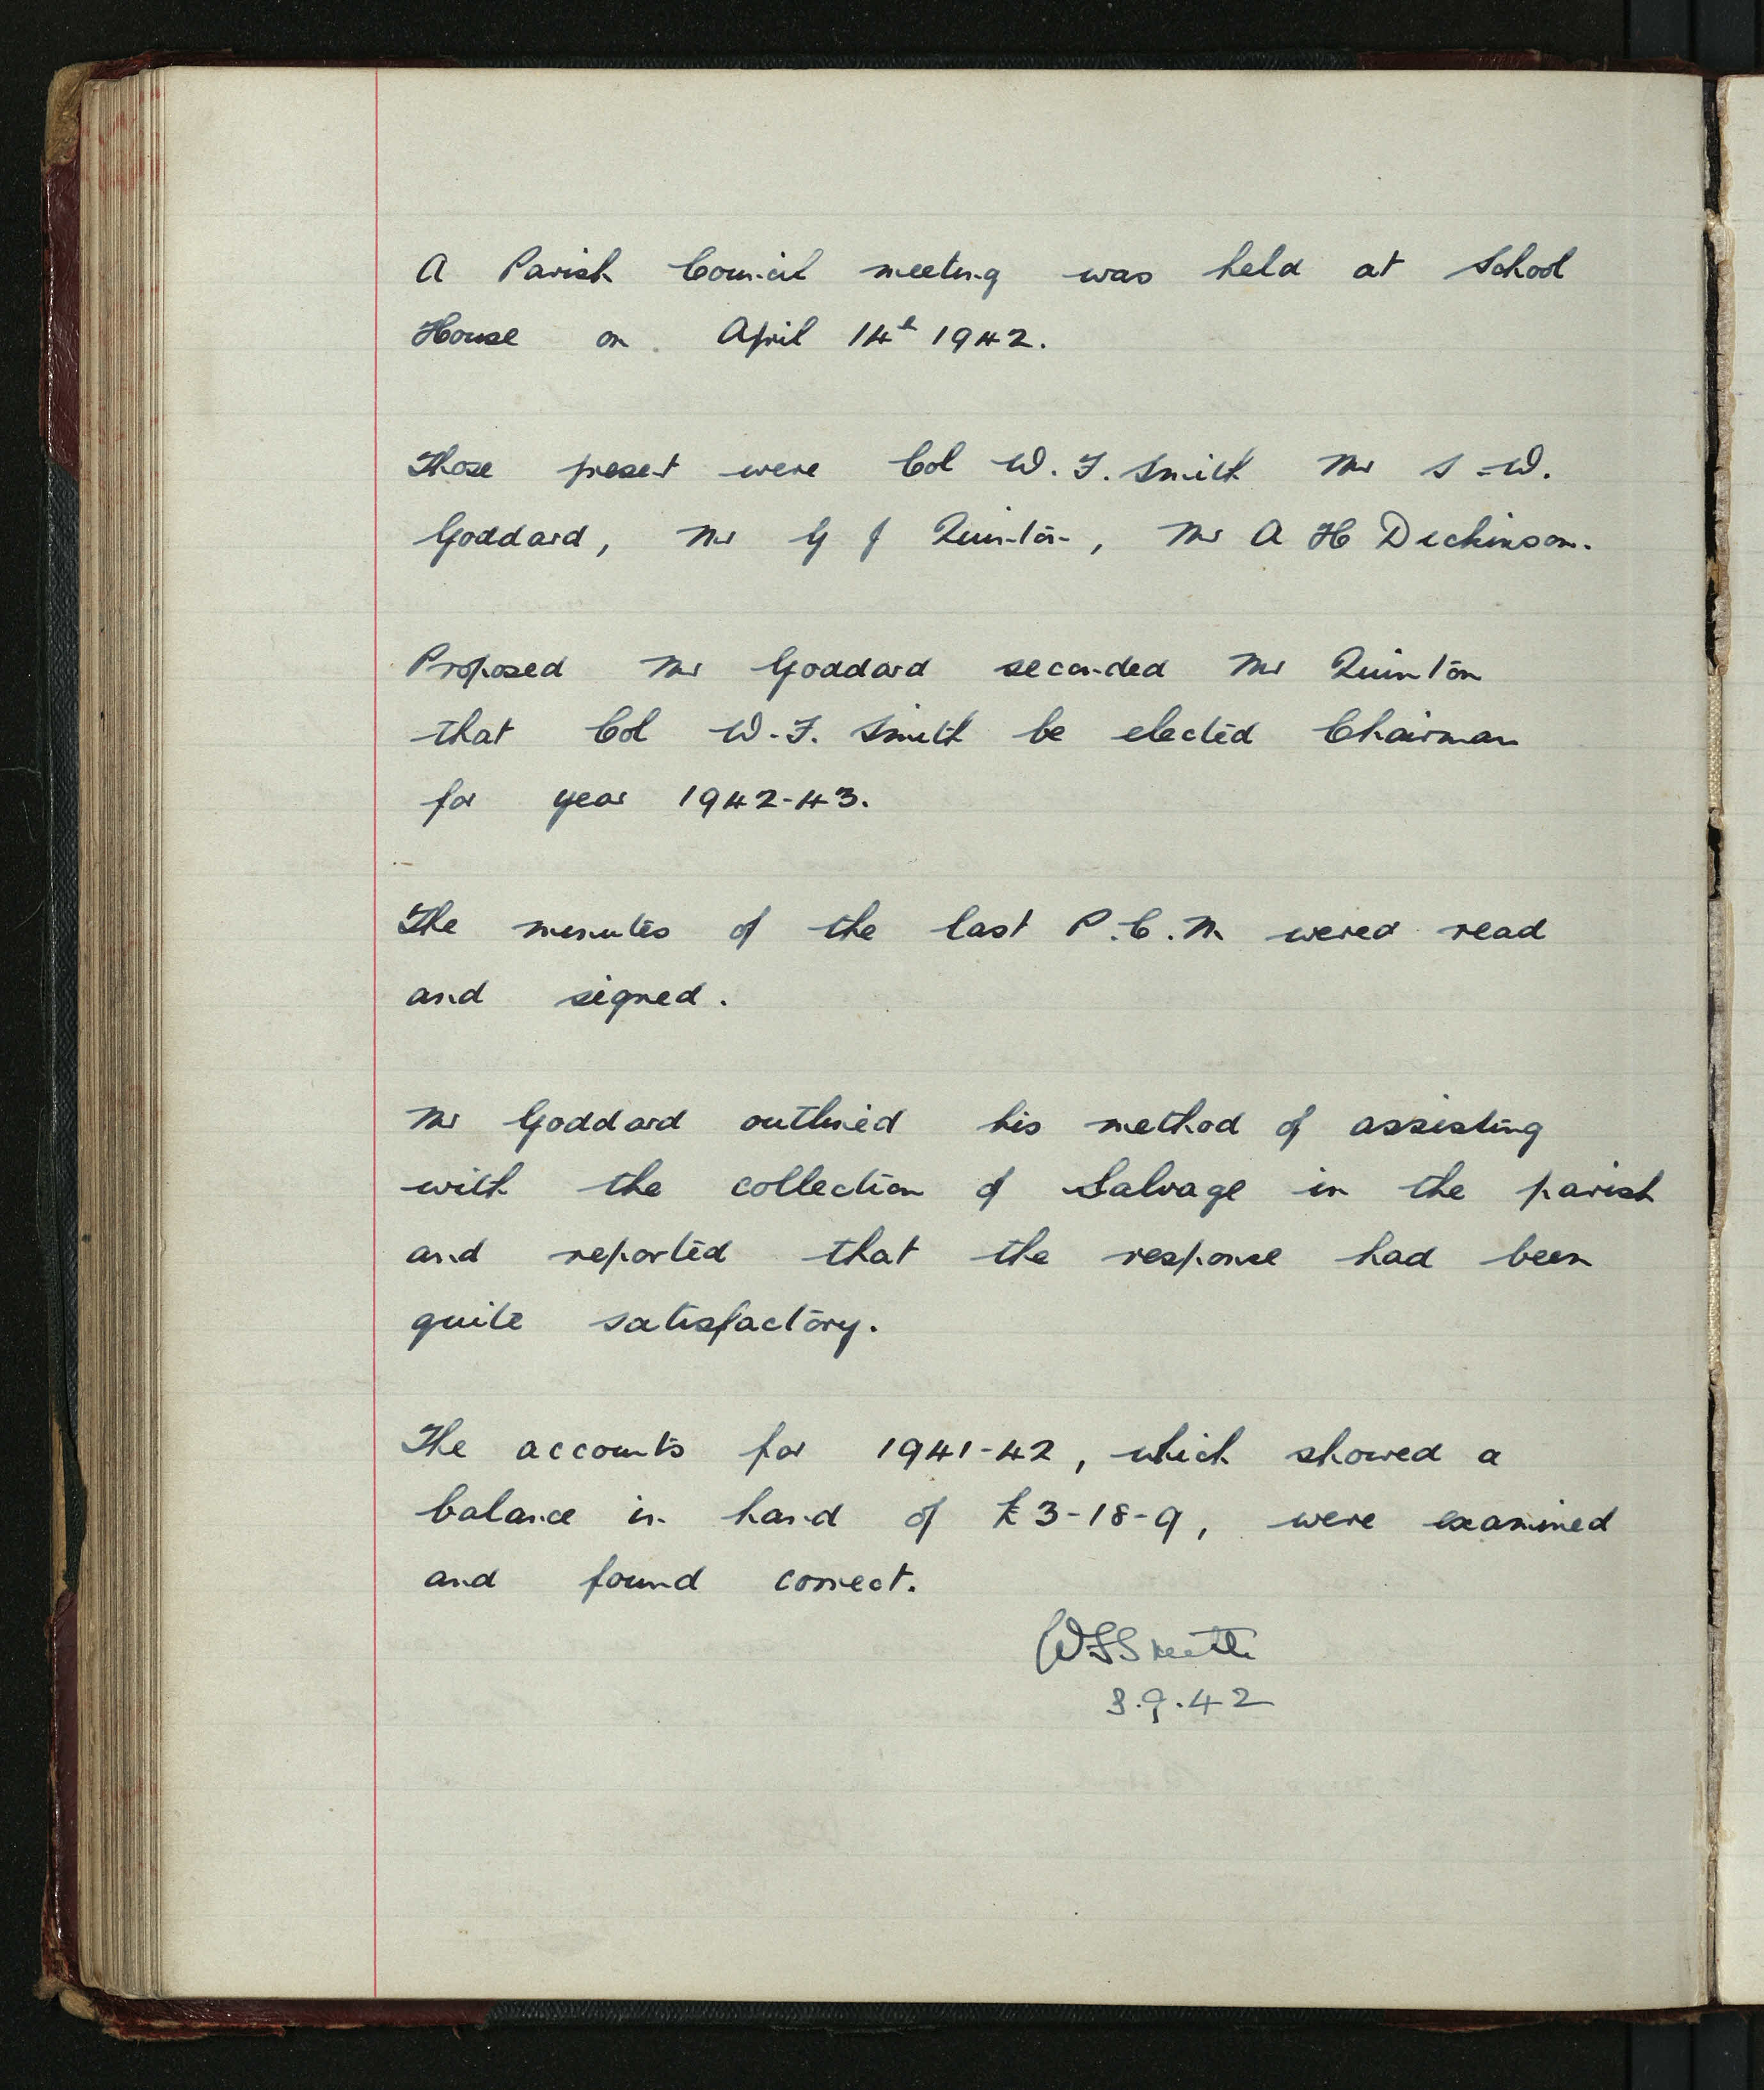 A Parish Council meeting was held at School
House on April 14th 1942.
Those present were Col W. F. Smith Mr S. W.
Goddard, Mr G J Quinton, Mr A H Dickinson.
Proposed Mr Goddard seconded Mr Quinton
that Col W. F. Smith be elected Chairman
for year 1942-43.
The minutes of the last P.C.M. wered read
and signed.
Mr Goddard outlined his method of assisting
with the collection of Salvage in the parish
and reported that the response had been
quite satisfactory.
The accounts for 1941-42, which showed a
balance in hand of £3-18-9, were examined
and found correct.
WFSmith
3.9.42